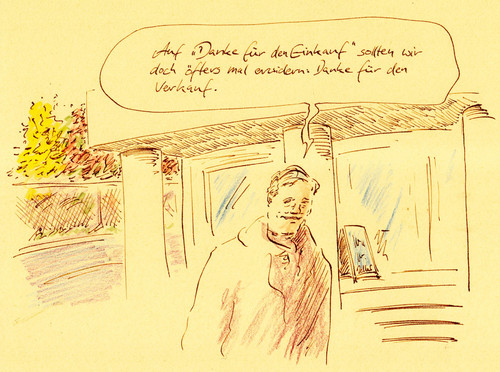 Auf „Danke für den Einkauf“ sollten wir
doch öfters mal erwidern: Danke für den
Verkauf.